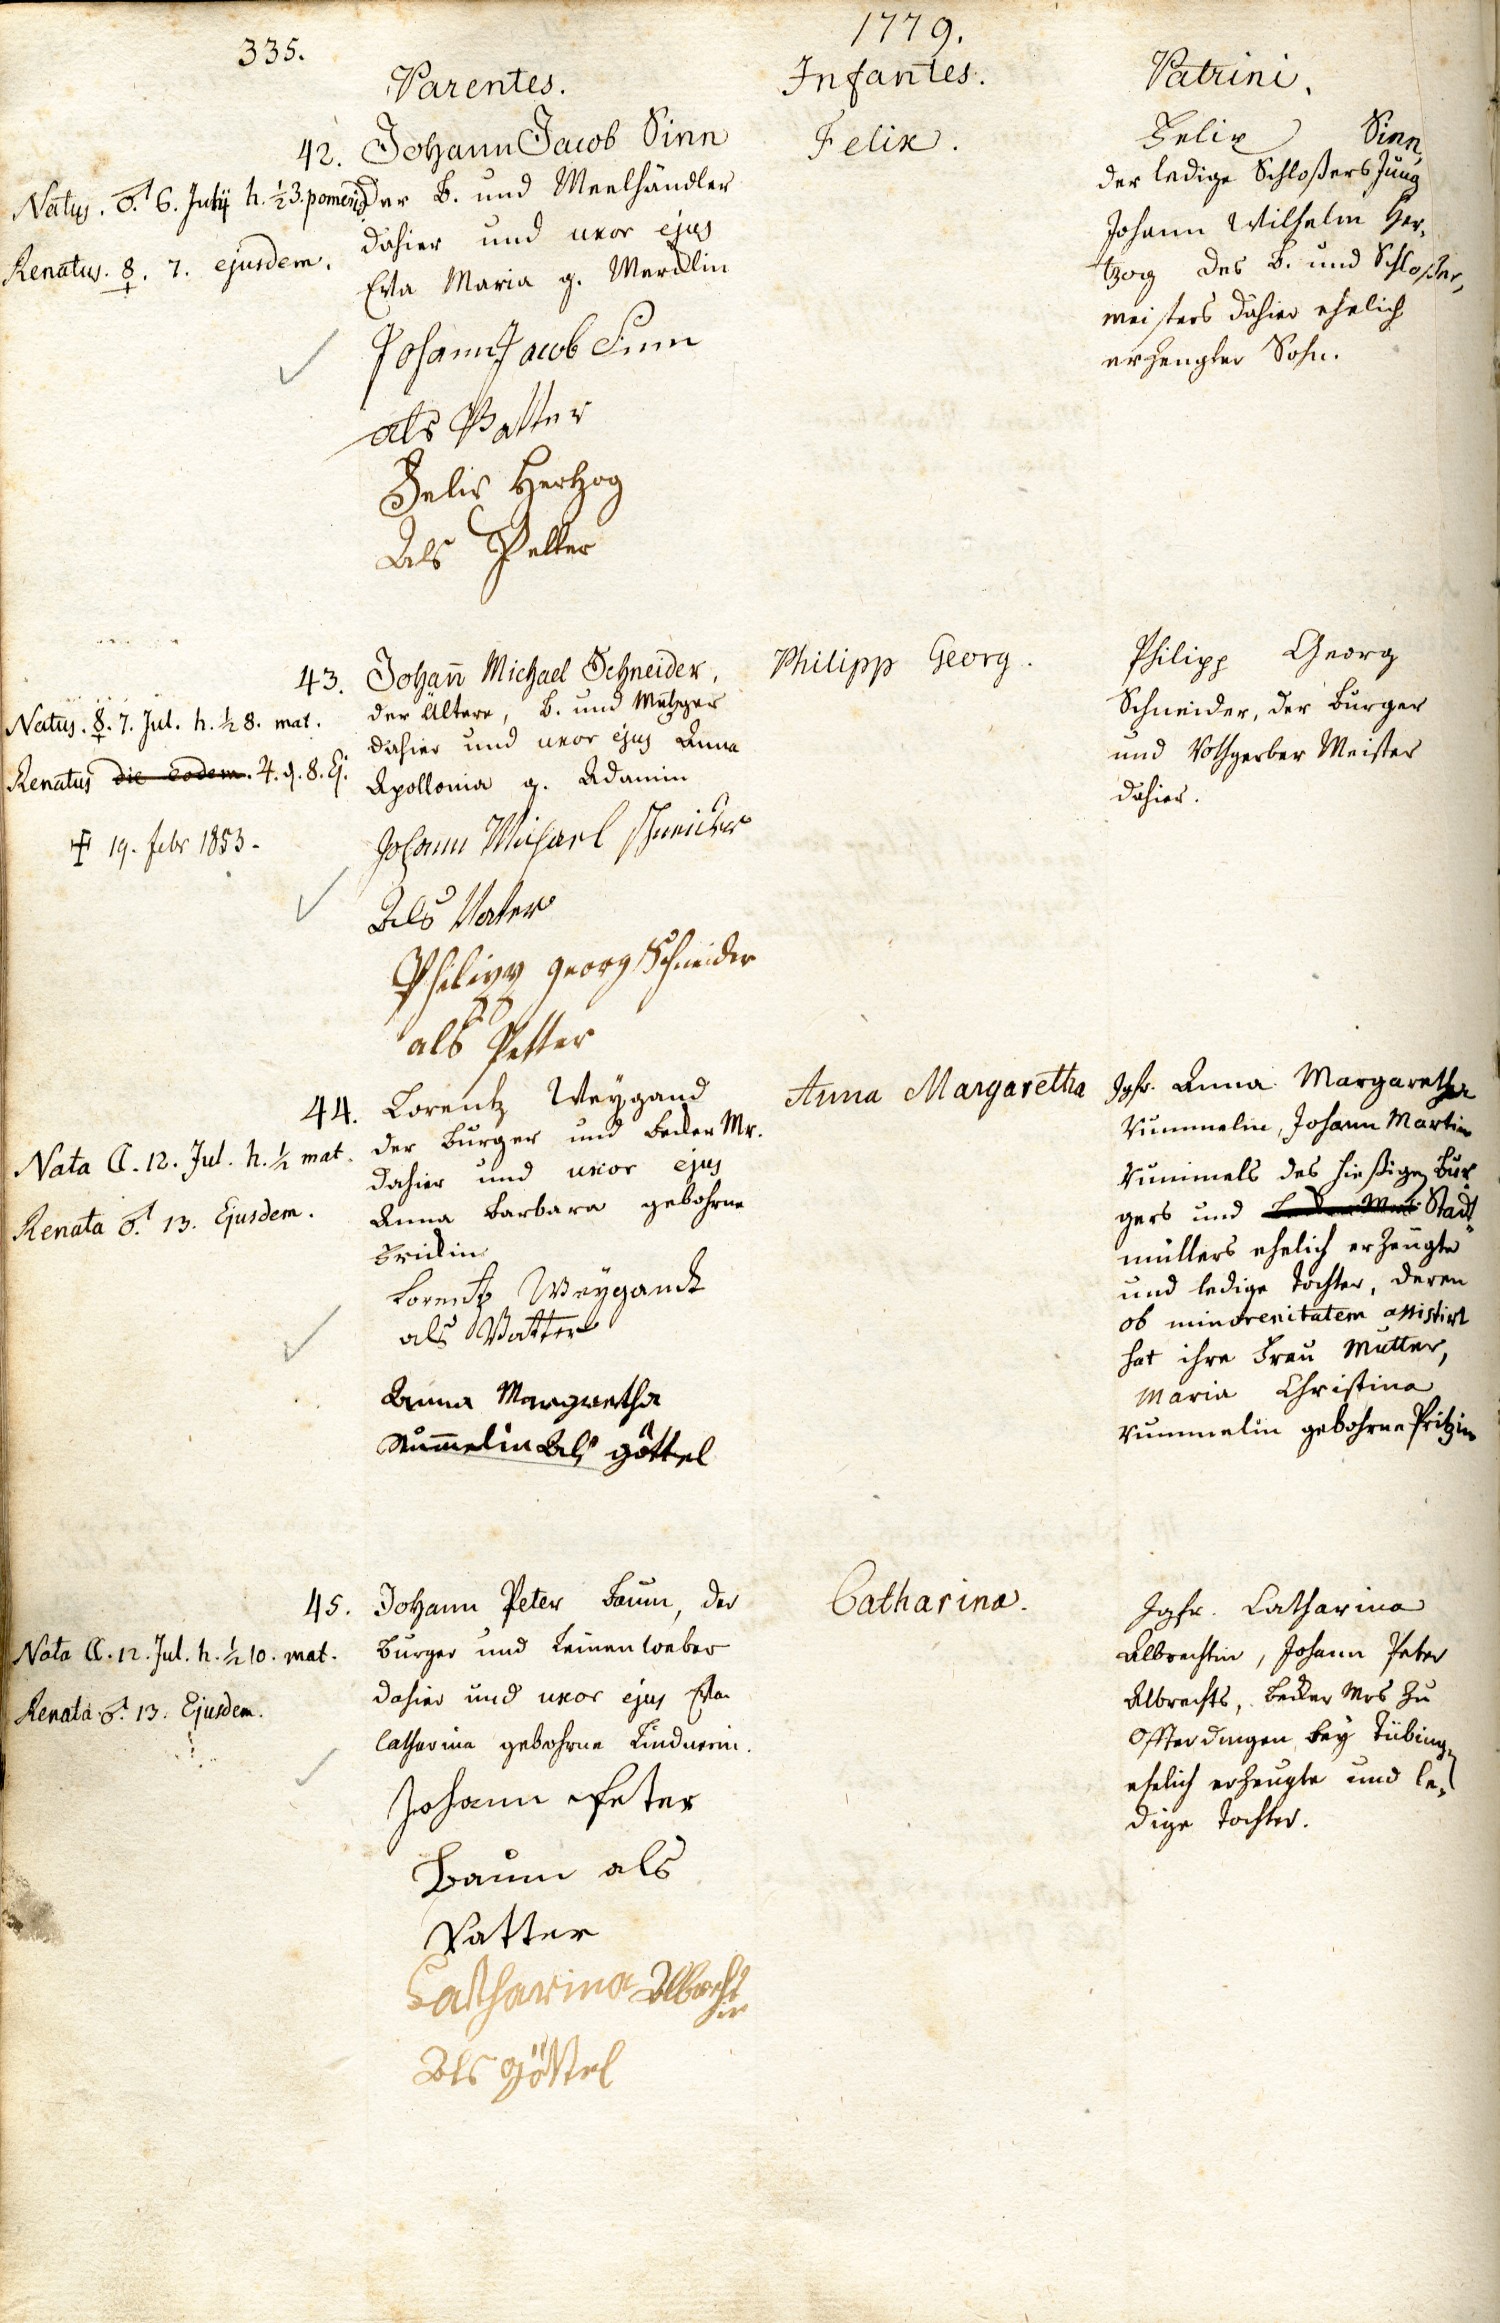 335.
1779.
Parentes.
Infantes.
Patrini.
42. Johann Jacob Sinn
der B. und Meelhändler
dahier und uxor ejus
Eva Maria g. Mercklin
Johann Jacob Sinn
als Vatter
Felix Hertzog
Als Petter
Natus. ♂. 6. Julij h. ½ 3. pomerid
Renatus. ☿. 7. ejusdem.
Felix.
Felix Sinn,
der ledige Schloßers Jung
Johann Wilhelm Her-
tzog des B. und Schloßer,
meisters dahier ehelich
erzeugter Sohn.
43. Johañ Michael Schneider,
der ältere, B. und Metzger
dahier und uxor ejus Anna
Apollonia g. Adamin
Johann Michael Schneider
Als Vater
Philipp Georg Schneider
als Petter
Natus. ☿. 7. Jul. h. ½ 8. mat.
Renatus die eodem. ♃. d. 8. Ej.
✝ 19. Febr 1853.
Philipp Georg.
Philipp Georg
Schneider, der Burger
und Rothgerber Meister
dahier.
44. Lorentz Weygand
der Burger und Becker Mr.
dahier und uxor ejus
Anna Barbara gebohrne
Frickin
Lorentz Weygandt
als Vatter
Anna Margretha
Rum̄elin Als göttel
Nata ☾. 12. Jul. h. ½ mat.
Renata ♂. 13. Ejusdem.
Anna Margaretha
Jgfr. Anna Margaretha
Rummelin, Johann Martin
Rummels des hießigen Bur
gers und Stadt
müllers ehelich erzeugte
und ledige Tochter, deren
ob minorenitatem assistirt
hat ihre Frau Mutter,
Maria Christina
Rummelin gebohrne Pritzin
45. Johann Peter Baum, der
Burger und Leinenweber
dahier und uxor ejus Eva
Catharina gebohrne Lindnerin.
Johann Peter
Baum als
Vatter
Catharina Albrecht
in
Als göttel
Nata ☾. 12. Jul. h. ½ 10. mat.
Renata ♂. 13. Ejusdem.
Catharina.
Jgfr. Catharina
Albrechtin, Johann Peter
Albrechts, Becker Mrs zu
Offterdingen bey Tübing,
ehelich erzeugte und le,
dige Tochter.